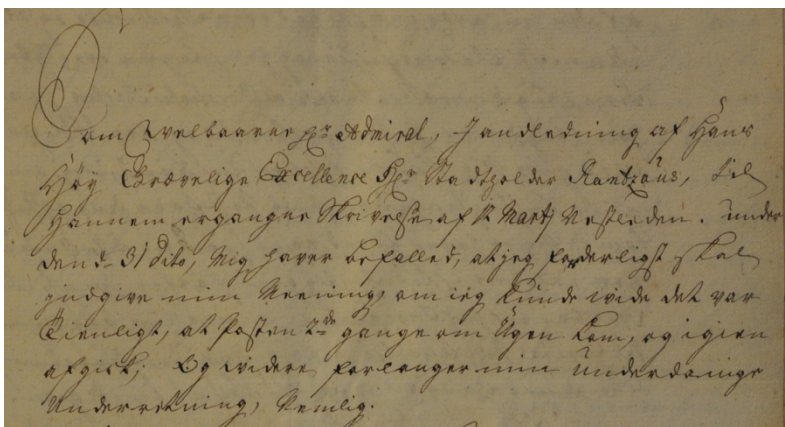 Som Welbaarne Hr Admiral, J andledning af Hans
Höy Grævelige Excellence Hr Stadtholder Rantzous, til
Hannem ergangne Skrivelse af Martj Nestleden. under
dend 31 dito, Mig haver befalled, at jeg forderligst skal
indgive min Meening, om ieg kunde vide det var
tienligt, at Posten 2de gange om Ugen kom, og igien
afgick; Og widere forlanger min underdanige
Underretning, Nemlig.